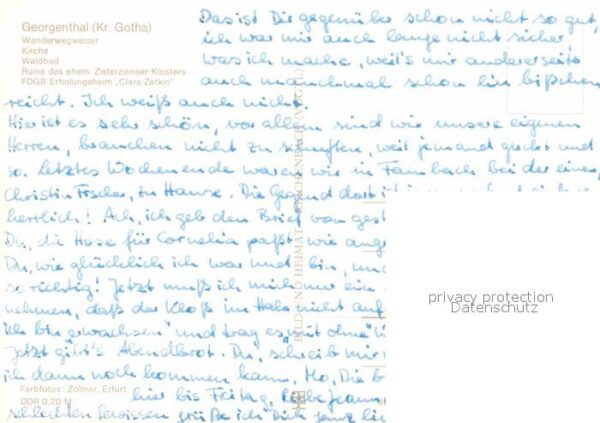 Georgenthal (Kr. Gotha)
Wanderwegweiser
Kirche
Waldbad
Ruine des ehem. Zisterzienser-Klosters
FDGB-Erholungsheim „Clara Zetkin"
Das ist Dir gegenüber schon nicht so gut,
ich war mir auch lange nicht sicher
was ich mache, weil's mir andererseits
auch manchmal schon ein bißchen
reicht. Ich weiß auch nicht.
Hier ist es sehr schön, vor allem sind wir unsere eigenen
Herren, brauchen nicht zu schuften, weil jemand guckt und
so. Letztes Wochenende waren wir in Fambach bei der einen,
Christin Fischer, zu Hause. Die Gegend dort ist
herrlich! Ach, ich geb den Brief von gest
Du, die Hose für Cornelia paßt wie ange
Du, wie glücklich ich war und bin, un
so richtig! Jetzt muß ich mir nur ein
nehmen, daß der Kloß im Hals nicht auf
ich bin erwachsen" und trag es mit ohne
Jetzt gibt's Abendbrot. Du, schreib mir
ich dann noch kommen kann. Mo, Die
hier bis Freitag, liebe
schlechten Gewissen grüße ich Dich ganz
BILD UND HEIMAT REICHENBACH (VOGTL)
Farbfotos: Zöllner, Erfurt
DDR 0,20 M
privacy protection
Datenschutz